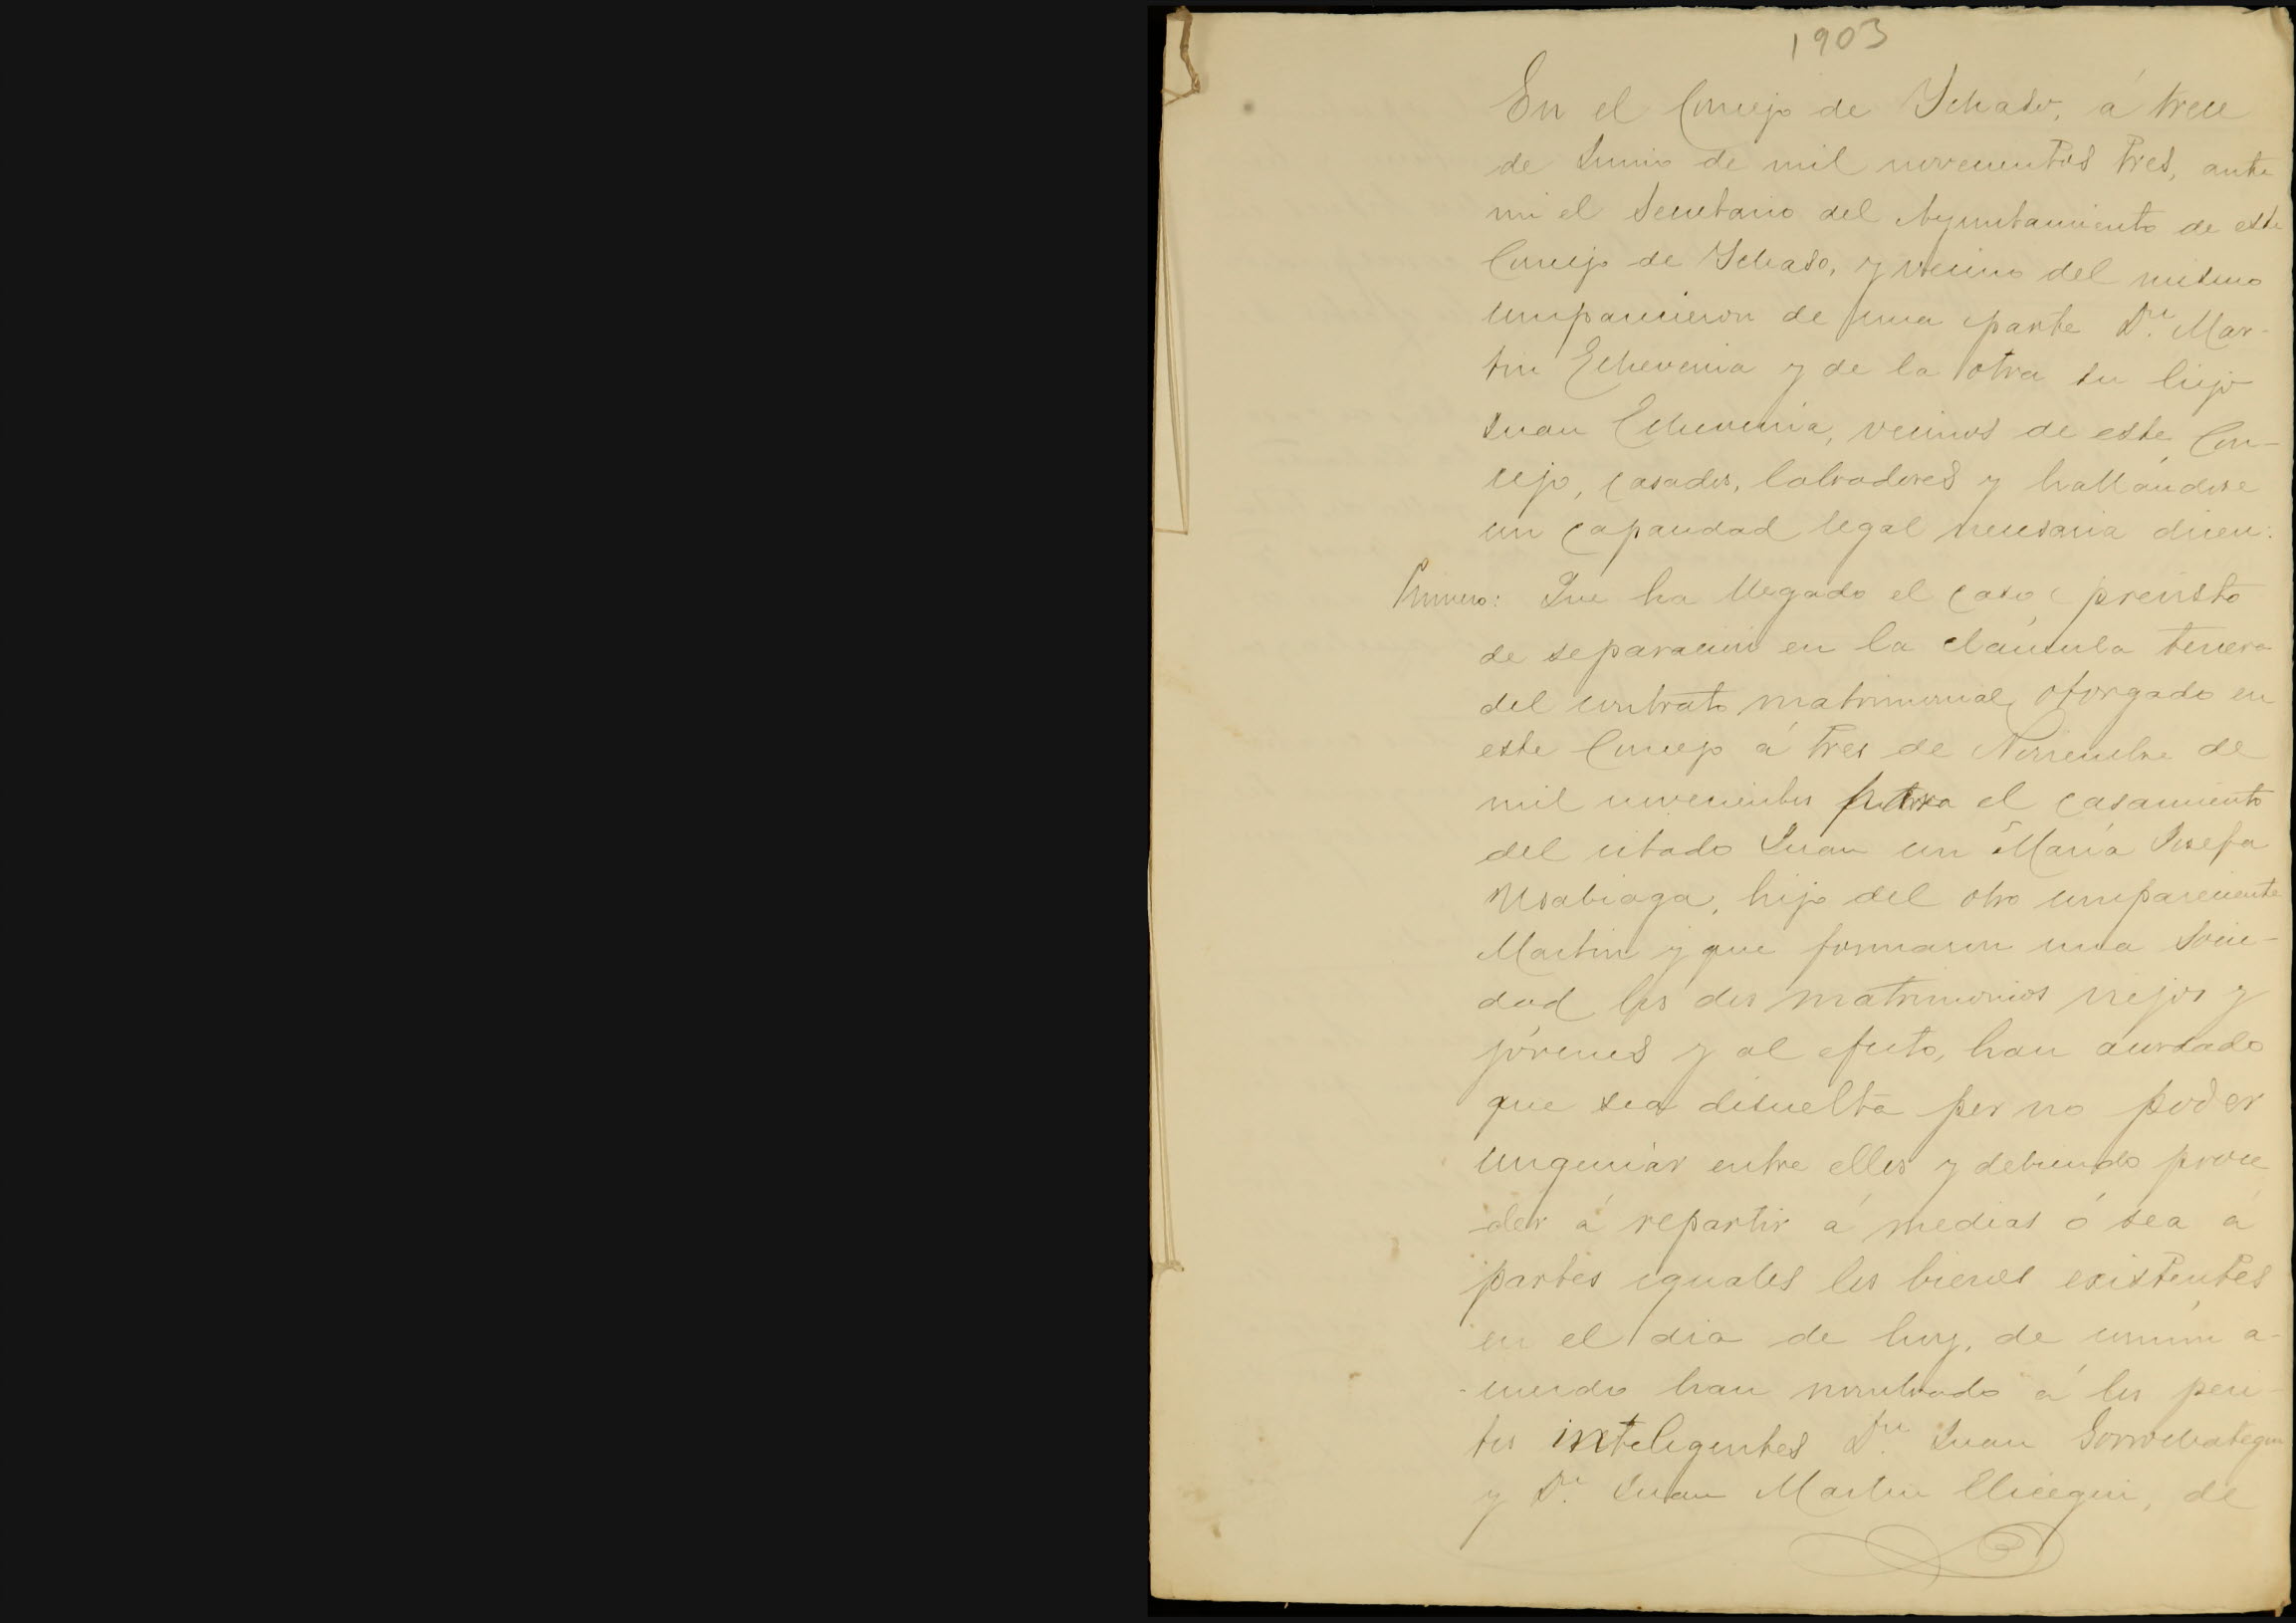 1903
En el Concejo de Ichaso, á trece
de Junio de mil novecientos tres, ante
mi el Secretario del Ayuntamiento de este
Concejo de Ichaso, y vecino del mismo
comparecieron de una parte Dn. Mar-
tin Echeverria y de la otra su hijo
Juan Echeverria, vecinos de este Con-
cejo, casados, labradores y hallándose
con capacidad legal necesaria dicen:
Primero: Que ha llegado el caso previsto
de separacion en la cláusula tercera
del contrato matrimonial otorgado en
este Concejo á tres de Noviembre de
mil novecientos para el casamiento
del citado Juan con María Josefa
Usabiaga, hijo del otro compareciente
Martin y que formaron una socie-
dad los dos matrimonios viejos y
jóvenes y al efecto, han acordado
que sea disuelta por no poder
congeniar entre ellos y debiendo proce
der á repartir á medias ó sea á
partes iguales los bienes existentes
en el dia de hoy, de comun a-
-cuerdo han nombrado á los peri-
tos inteligentes Dn. Juan Gorrochategui
y Dn. Juan Martin Elicegui, de